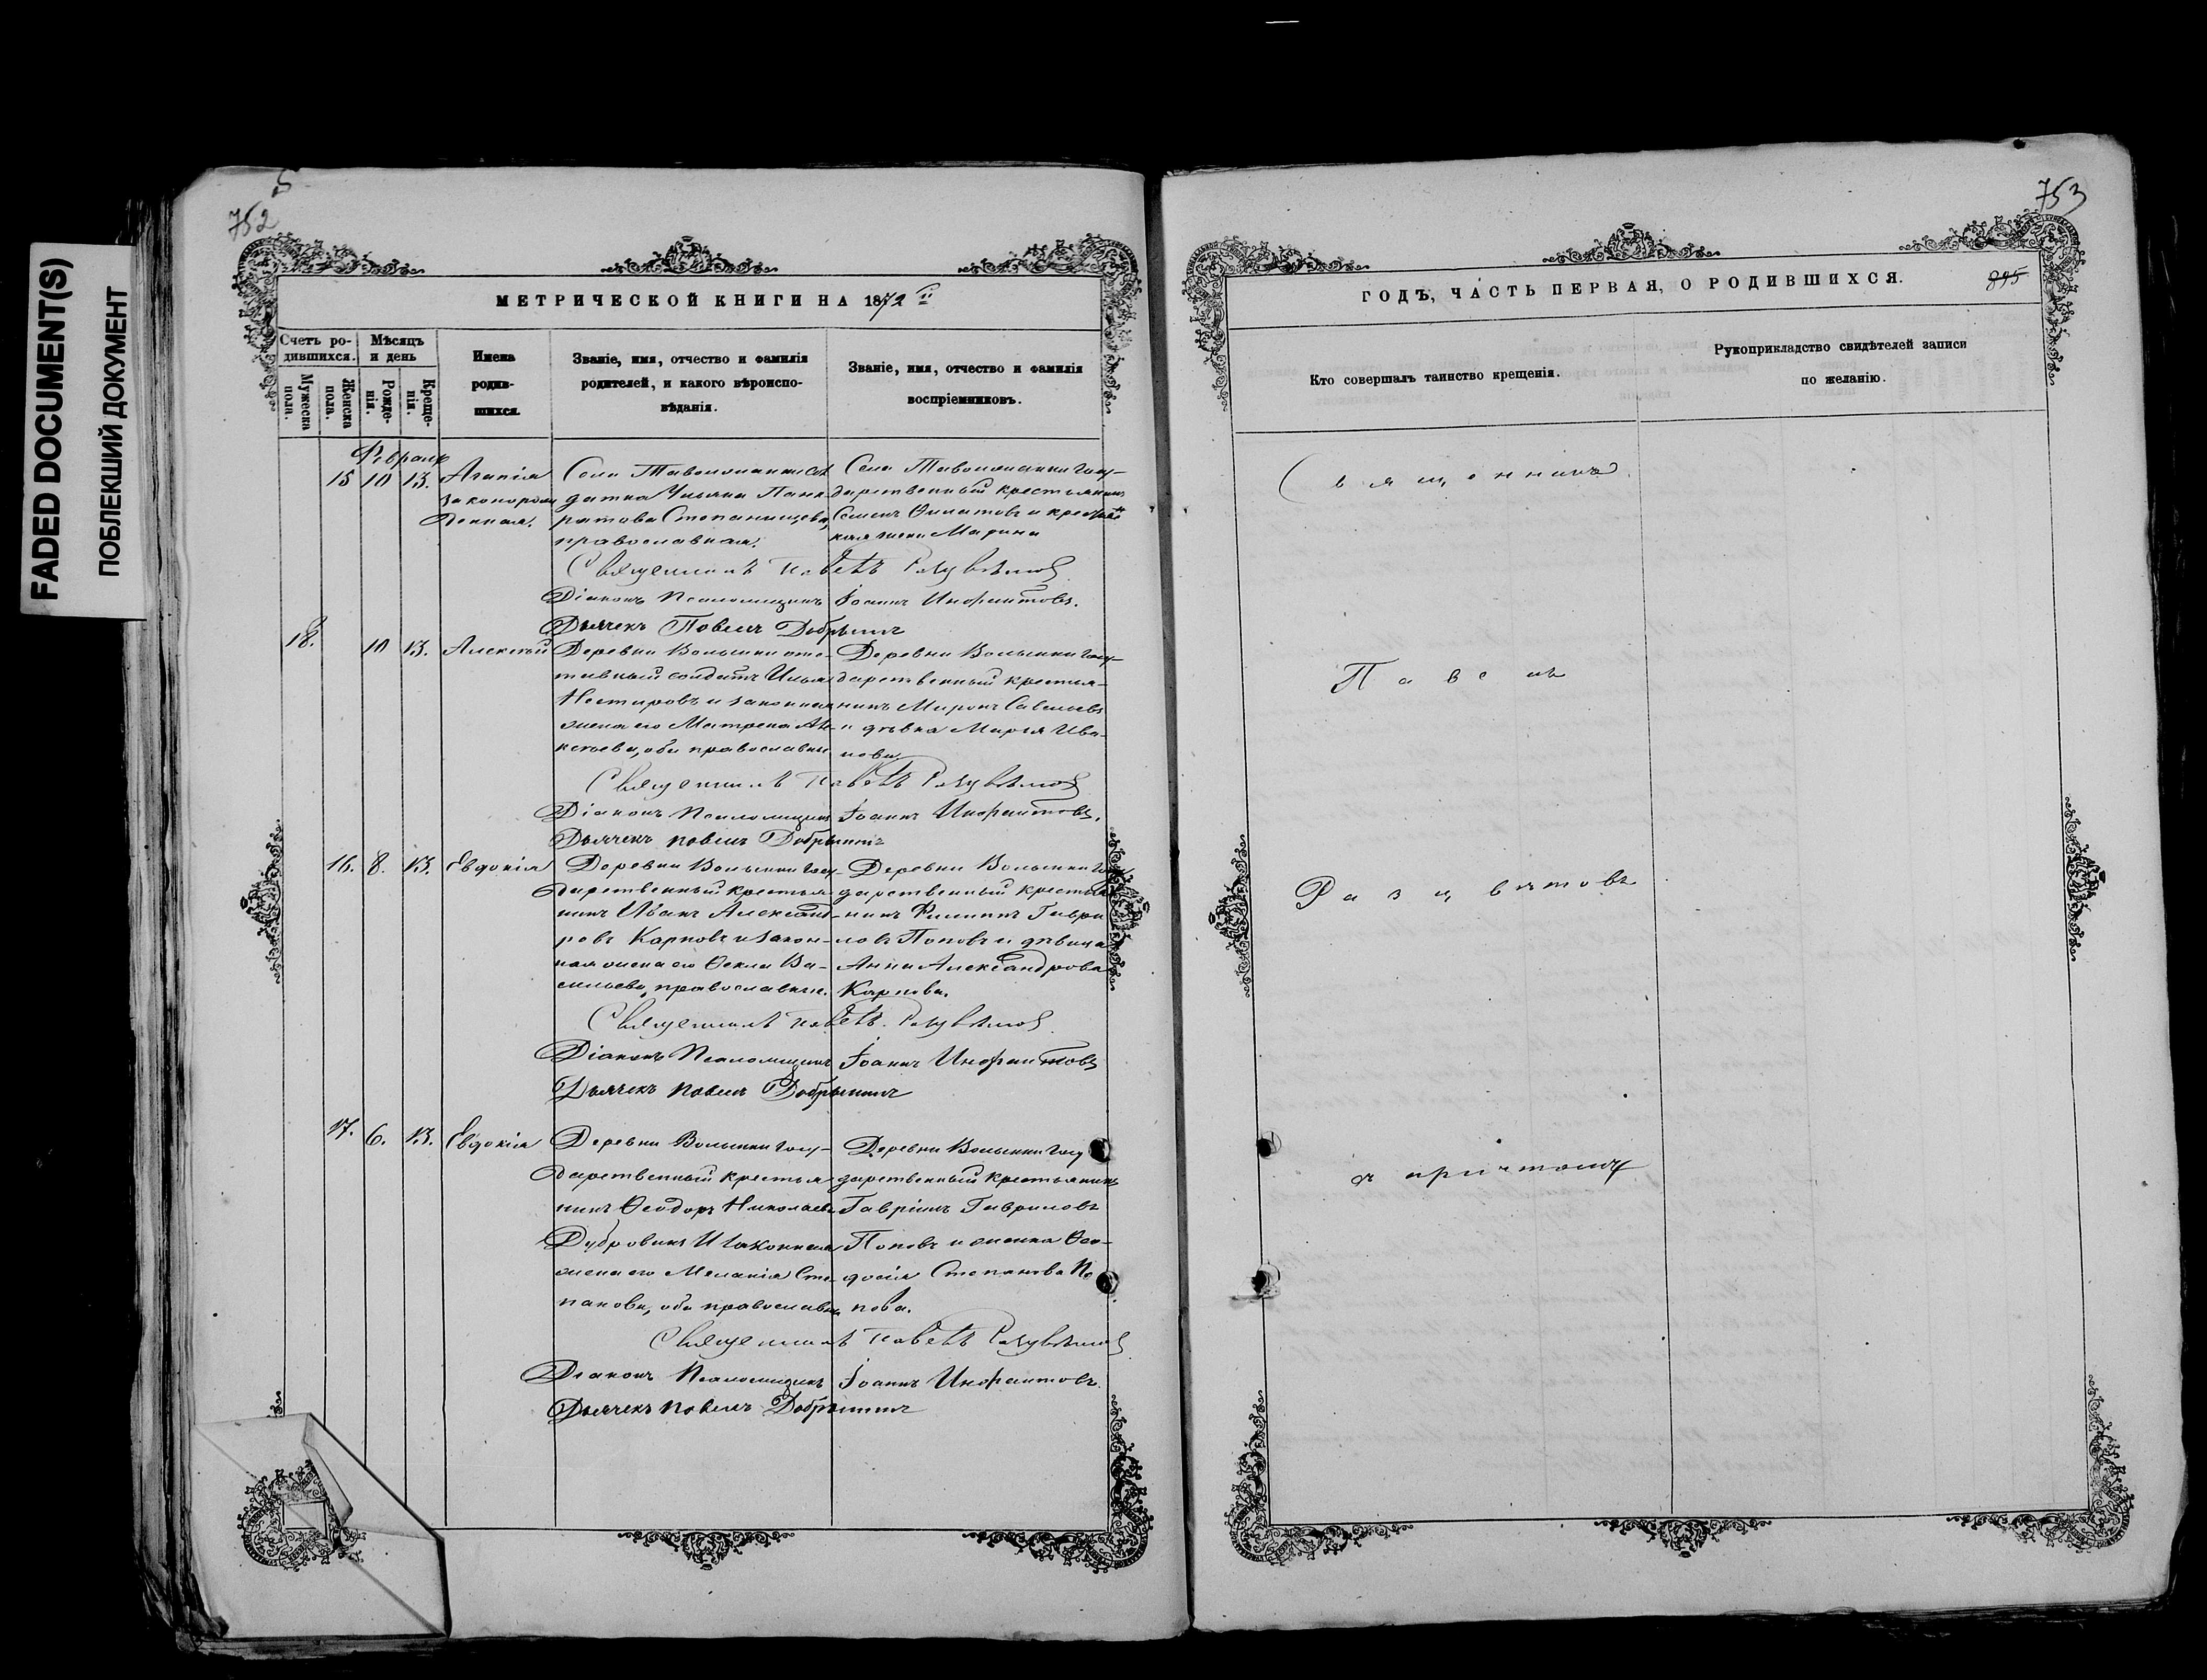 FADED DOCUMENT(S)
ПОБЛЕКШИЙ ДОКУМЕНТ
752
МЕТРИЧЕСКОЙ КНИГИ НА 1872й
Счетъ родившихся.
Мужеска пола.
Женска пола.
Мѣсяцъ и день
Рожденія.
Крещенія.
Имена
родив-
шихся.
Званіе, имя, отчество и фамилія
родителей, и какого вѣроиспо-
вѣданія.
Званіе, имя, отчество и фамилія
воспріемниковъ.
Февраль
15 10 13. Агапія
законорож
денная.
Села Таволжанки сол
датка Ульяна Панк
ратова Степанищева,
православная.
Села Таволжанки госу-
дарственный крестьянинъ
Семенъ Филатовъ и крестьянс
кая жена Марина
Священникъ Павелъ Разцвѣтов
Діаконъ Псаломщикъ Іоаннъ Инфантовъ.
Дьячекъ Павелъ Добрынинъ
18. 10 13. Алексѣй
Деревни Волынки отс-
тавный солдатъ Илья
Нестеровъ и законная
жена его Матрена Ал-
ксѣева, оба православны
Деревни Волынки госу-
дарственный крестья-
нинъ Миронъ Савельевъ
и дѣвка Марія Ива-
нова
Священникъ Павелъ Разцвѣтов
Діаконъ Псаломщикъ Іоаннъ Инфантовъ.
Дьячекъ Павелъ Добрынинъ
16. 8. 13. Евдокія
Деревни Волынки госу-
дарственный крестья-
нинъ Иванъ Александ-
ровъ Карповъ и закон-
ная жена его Ѳекла Ва-
сильева, православные.
Деревни Волынки Госу
дарственный крестья
нинъ Филиппъ Гаври
ловъ Поповъ и дѣвица
Анна Александрова
Карпова.
Священникъ Павелъ Разцвѣтов
Діаконъ Псаломщикъ Іоаннъ Инфантовъ
Дьячекъ Павелъ Добрынинъ
17. 6. 13. Евдокія
Деревни Волынки госу-
дарственный крестья
нинъ Ѳеодоръ Николаевъ
Дубровинъ и законная
жена его Меланія Сте-
панова, оба православн
Деревни Волынки госу
дарственный крестьянинъ
Гавріилъ Гавриловъ
Поповъ и женка Ѳео-
досія Степанова По
пова.
Священникъ Павелъ Разцвѣтов
Діаконъ Псаломщикъ Іоаннъ Инфантовъ.
Дьячекъ Павелъ Добрынинъ
753
ГОДЪ, ЧАСТЬ ПЕРВАЯ, О РОДИВШИХСЯ.
895
Кто совершалъ таинство крещенія.
Рукоприкладство свидѣтелей записи
по желанію.
Священникъ
Павелъ
Разцвѣтовъ
съ причтомъ